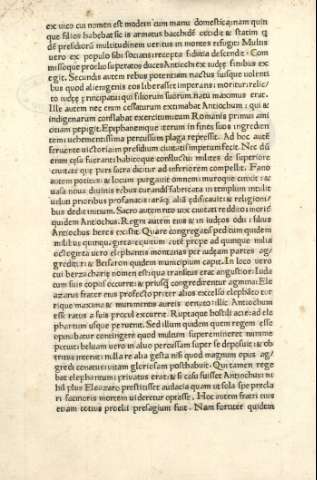 ex uico cui nomen est modein cum manu domestica: nam quin
que filios habebat sic is armatus bacchidē occidit & statim q̄
dē presidioṝ multitudinem ueritus in montes refugit: Multis
uero ex populo sibi sociatis recepta fiducia descendit. Com
missoque proelio superatos duces Antiochi ex iudeę finibus ex
egit. Secundis autem rebus potentiam nactus suisque uolenti
bus quod alienigenis eos liberasset imperans: moritur: relic
to iudeę principatu: qui filiorum suorum natu maximus erat.
Ille autem nec enim cessaturum existimabat Antiochum: qui &
indigenarum conflabat exercitum: & cum Romanis primus ami
citiam pepigit. Epiphanemque iterum in fines suos ingredien
tem: uehementissima percussum plaga repressit. Ad hoc autē
feruente uictoria in presidium ciuitatis impetum fecit. Nec dū
enim cęsa fuerant: habitoque conflictu: milites de superiore
ciuitate quę pars sacra dicitur ad inferiorem compellit. Fano
autem potitus: & locum purgauit omnem: muroque cinxit: &
uasa noua diuinis rebus curanda fabricata in templum intulit
ueluti prioribus profanatis: arāq; aliā ędificauit: & religioni
bus dedit initium. Sacro autem ritu uix ciuitati reddito: morit͛
quidem Antiochus. Regni autem eius & in iudęos odii: filius
Antiochus heres existit. Quare congregatis peditum quidem
milibus quinquaginta: equitum autē prope ad quinque milia
octoginta uero elephantis: montanas per iudęam partes ag
greditur: & Betsuron quidem municipium capit. In loco uero
cui berzacharię nomen est: qua transitus erat angustior: Iudas
cum suis copiis occurrit: & priusq̄ congrederentur agmina: El
eazarus frater eius prospecto pręter alios excelso elephāto tur
rique maxima & munimentis aureis ceruto: ille: Antiochum
esse ratus a suis procul excurrit. Ruptaque hostili acie: ad ele
phantum usque peruenit. Sed illum quidem quem regem esse
opinabatur contingere quod multum supereminebat nimime
potuit: beluam uero in aluo percussam super se deposuit: & ob
tritus interiit: nulla re alia gesta nisi quod magnum opus ag/
gredi conatus: uitam glorię suam posthabuit. Qui tamen rege
bat elephantum: priuatus erat: & si casu fuisset Antiochus: ni
hil plus Eleazaro prestitisset audacia quam ut sola spe precla
ri facinoris mortem uideretur optasse. Hoc autem fratri eius
etiam totius proelii presagium fuit. Nam fortiter quidem